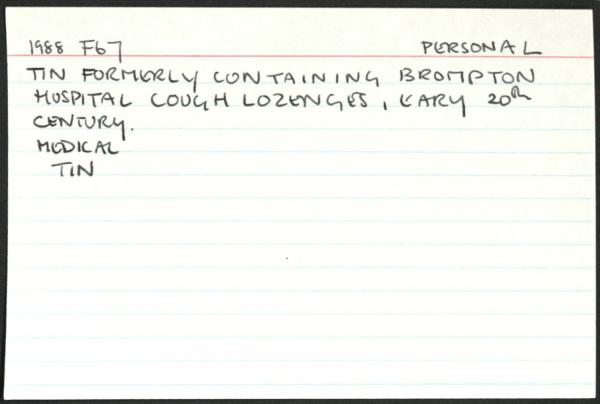 1988 F67 PERSONAL
TIN FORMERLY CONTAINING BROMPTON
HOSPITAL COUGH LOZENGES, EARY 20th
CENTURY.
MEDICAL
TIN